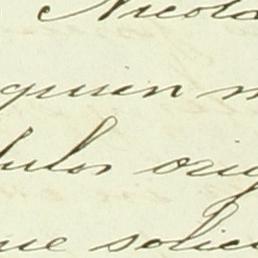 Nicola
quien m
dulos orig
que solici